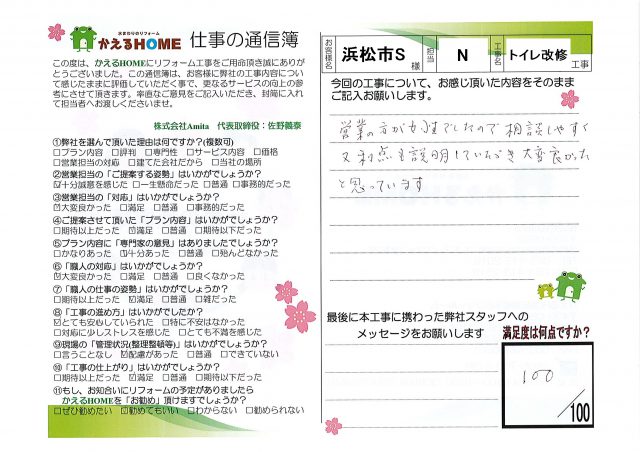 水まわりのリフォーム
かえるHOME 仕事の通信簿
この度は、かえるHOMEにリフォーム工事をご用命頂き誠にありが
とうございました。この通信簿は、お客様に弊社の工事内容について
感じたままに評価していただく事で、更なるサービスの向上の参
考にさせて頂きます。率直なご意見をご記入いただき、封筒に入れ
て担当者へお渡しくださいませ。
株式会社Amita 代表取締役：佐野義泰
①弊社を選んで頂いた理由は何ですか?(複数可)
□プラン内容 □評判 □専門性 □サービス内容 □価格
□営業担当の対応 □建てた会社だから □当社の場所
②営業担当の「ご提案する姿勢」はいかがでしょうか?
☑十分誠意を感じた □一生懸命だった □普通 □事務的だった
③営業担当の「対応」はいかがでしょうか?
☑大変良かった □満足 □普通 □事務的だった
④ご提案させて頂いた「プラン内容」はいかがでしょうか?
□期待以上だった ☑満足 □普通 □期待以下だった
⑤プラン内容に「専門家の意見」はありましたでしょうか?
□かなりあった ☑十分あった □普通 □殆んどなかった
⑥「職人の対応」はいかがでしょうか?
☑大変良かった □満足 □普通 □良くなかった
⑦「職人の仕事の姿勢」はいかがでしょうか?
□期待以上だった ☑満足 □普通 □雑だった
⑧「工事の進め方」はいかがでしたか?
☑とても安心していられた □特に不安はなかった
□対応に少しストレスを感じた □とても不満を感じた
⑨現場の「管理状況(整理整頓等)」はいかがでしょうか?
□言うことなし ☑配慮があった □普通 □できていない
⑩「工事の仕上がり」はいかがでしょうか?
□期待以上だった ☑満足 □普通 □期待以下だった
⑪もし、お知合いにリフォームの予定がありましたら
かえるHOMEを「お勧め」頂けますでしょうか?
□ぜひ勧めたい ☑勧めてもいい □わからない □勧められない
お客様名 浜松市S 様 担当 N 工事名 トイレ改修 工事
今回の工事について、お感じ頂いた内容をそのまま
ご記入お願いします。
営業の方が女性でしたので相談しやすく
又利点も説明していただき大変良かった
と思っています
最後に本工事に携わった弊社スタッフへの
メッセージをお願いします
満足度は何点ですか?
100
/100